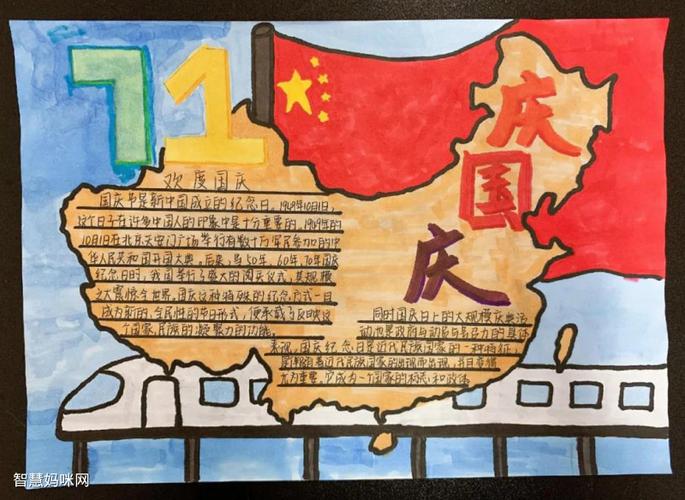 71
庆
国
庆
欢度国庆
国庆节是新中国成立的纪念日。1949年10月1日,
这个日子在许多中国人的印象中是十分重要的。1949年的
10月1日在北京天安门广场举行有数十万军民参加的中
华人民共和国开国大典。后来,每50年、60年、70年国庆
纪念日时,我国举行了盛大的国庆仪式,其规模
之大震惊全世界。国庆这种特殊的纪念方式一旦
成为新的、全民性的节日形式,便承载了反映这
个国家、民族的凝聚力的功能。
同时国庆日上的大规模庆典活
动也是政府动员与号召力的具体
表现。国庆纪念日是近代民族国家的一种特征,
是伴随着近代民族国家的出现而出现,并且变得
尤为重要。它成为一个国家的
智慧妈咪网